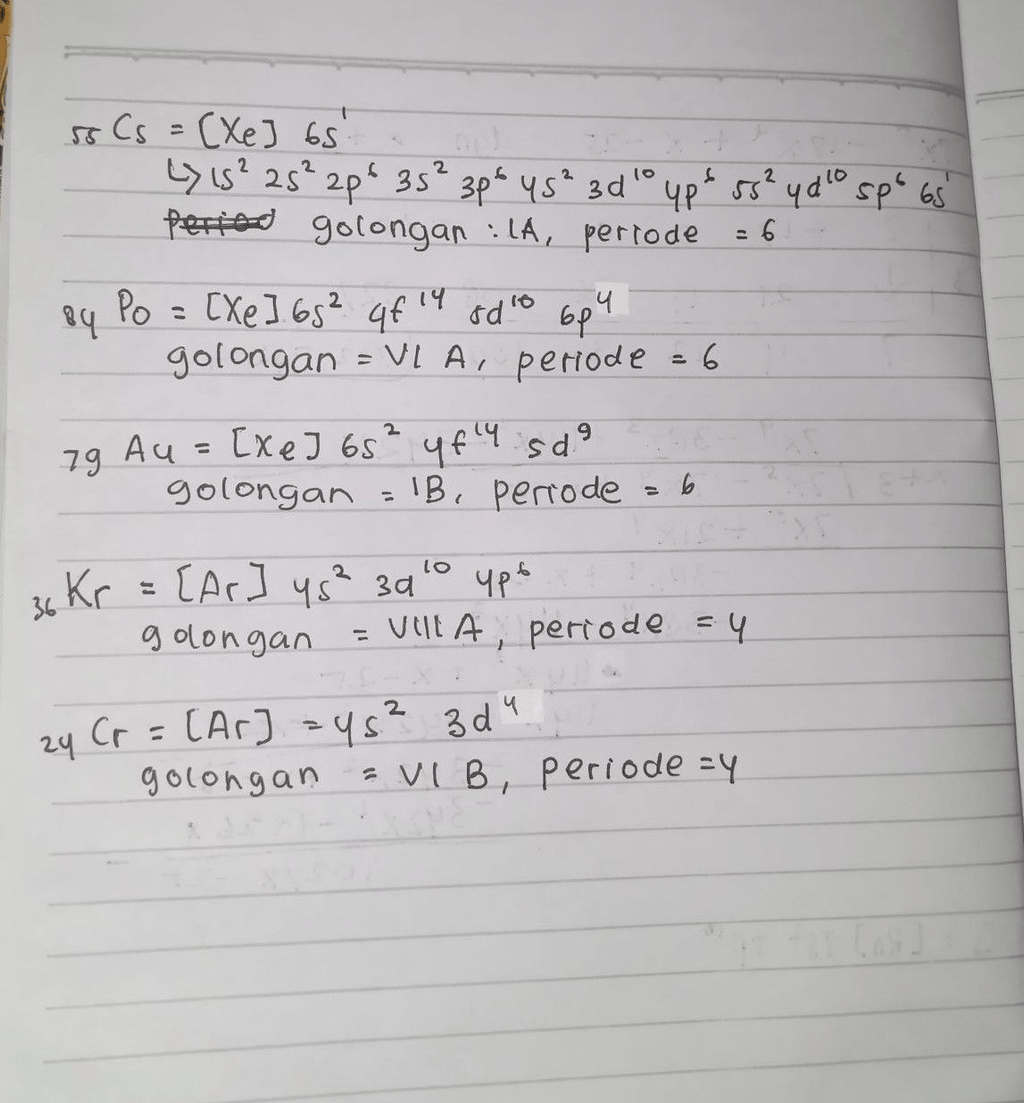 ₅₅Cs = [Xe] 6s¹
↳ 1s² 2s² 2p⁶ 3s² 3p⁶ 4s² 3d¹⁰ 4p⁶ 5s² 4d¹⁰ 5p⁶ 6s¹
Period golongan : IA, periode = 6
₈₄Po = [Xe] 6s² 4f¹⁴ 5d¹⁰ 6p⁴
golongan = VI A, periode = 6
₇₉Au = [Xe] 6s² 4f¹⁴ 5d⁹
golongan = IB, periode = 6
₃₆Kr = [Ar] 4s² 3d¹⁰ 4p⁶
golongan = VIII A, periode = 4
₂₄Cr = [Ar] = 4s² 3d⁴
golongan = VI B, periode = 4